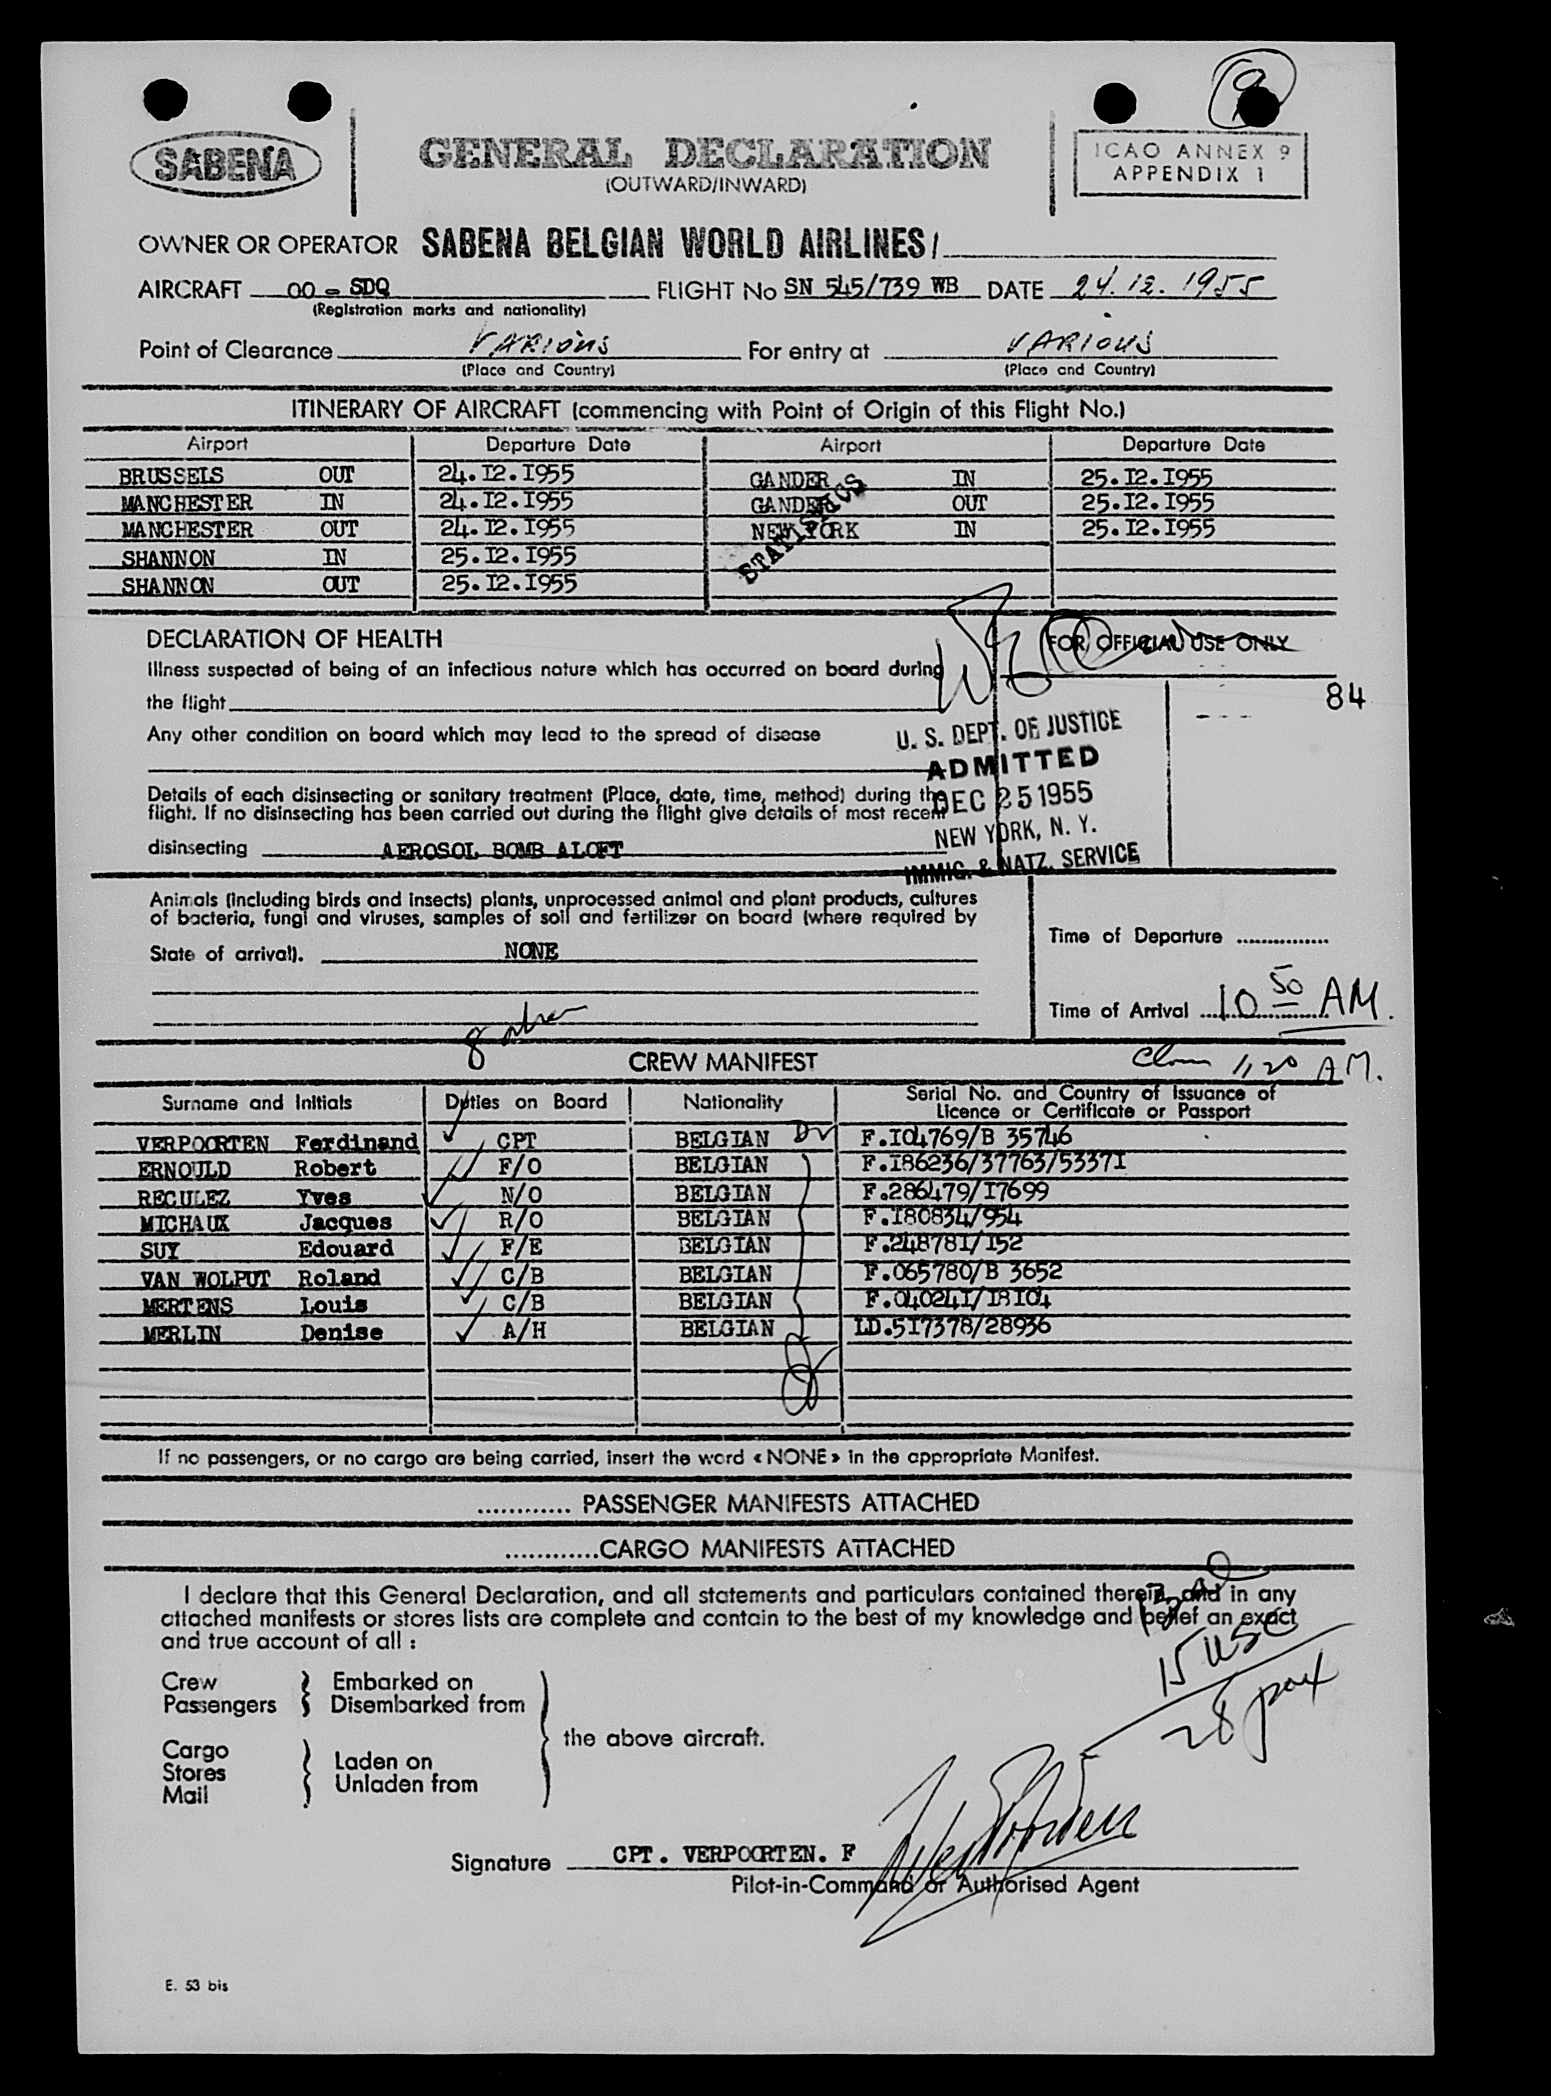 9
SABENA
GENERAL DECLARATION
(OUTWARD/INWARD)
ICAO ANNEX 9
APPENDIX 1
OWNER OR OPERATOR SABENA BELGIAN WORLD AIRLINES/
AIRCRAFT OO - SDQ FLIGHT No SN 545/739 WB DATE 24.12.1955
(Registration marks and nationality)
Point of Clearance VARIOUS For entry at VARIOUS
(Place and Country) (Place and Country)
ITINERARY OF AIRCRAFT (commencing with Point of Origin of this Flight No.)
Airport Departure Date Airport Departure Date
BRUSSELS OUT 24.I2.I955 GANDER IN 25.I2.I955
MANCHESTER IN 24.I2.I955 GANDER OUT 25.I2.I955
MANCHESTER OUT 24.I2.I955 NEW YORK IN 25.I2.I955
SHANNON IN 25.I2.I955
SHANNON OUT 25.I2.I955
STATISTICS
DECLARATION OF HEALTH
FOR OFFICIAL USE ONLY
Illness suspected of being of an infectious nature which has occurred on board during
the flight
84
Any other condition on board which may lead to the spread of disease
U. S. DEPT. OF JUSTICE
ADMITTED
DEC 25 1955
NEW YORK, N. Y.
IMMIG. & NATZ. SERVICE
Details of each disinsecting or sanitary treatment (Place, date, time, method) during the
flight. If no disinsecting has been carried out during the flight give details of most recent
disinsecting AEROSOL BOMB ALOFT
Animals (including birds and insects) plants, unprocessed animal and plant products, cultures
of bacteria, fungi and viruses, samples of soil and fertilizer on board (where required by
State of arrival). NONE
Time of Departure ...............
Time of Arrival 10 50 AM.
8
CREW MANIFEST
11,20 AM.
Surname and Initials Duties on Board Nationality Serial No. and Country of Issuance of
Licence or Certificate or Passport
VERPOORTEN Ferdinand CPT BELGIAN F.I04769/B 35746
ERNOULD Robert F/O BELGIAN F.I86236/37763/5337I
RECULEZ Yves N/O BELGIAN F.286479/I7699
MICHAUX Jacques R/O BELGIAN F.I80834/954
SUY Edouard F/E BELGIAN F.24878I/I52
VAN WOLPUT Roland C/B BELGIAN F.065780/B 3652
MERTENS Louis C/B BELGIAN F.04024I/I8I04
MERLIN Denise A/H BELGIAN LD.5I7378/28936
If no passengers, or no cargo are being carried, insert the word «NONE» in the appropriate Manifest.
............ PASSENGER MANIFESTS ATTACHED
............CARGO MANIFESTS ATTACHED
I declare that this General Declaration, and all statements and particulars contained therein, and in any
attached manifests or stores lists are complete and contain to the best of my knowledge and belief an exact
and true account of all :
13
15 USC
28 pax
Crew Embarked on
Passengers Disembarked from
the above aircraft.
Cargo Laden on
Stores Unladen from
Mail
Signature CPT. VERPOORTEN. F
Pilot-in-Command or Authorised Agent
E. 53 bis